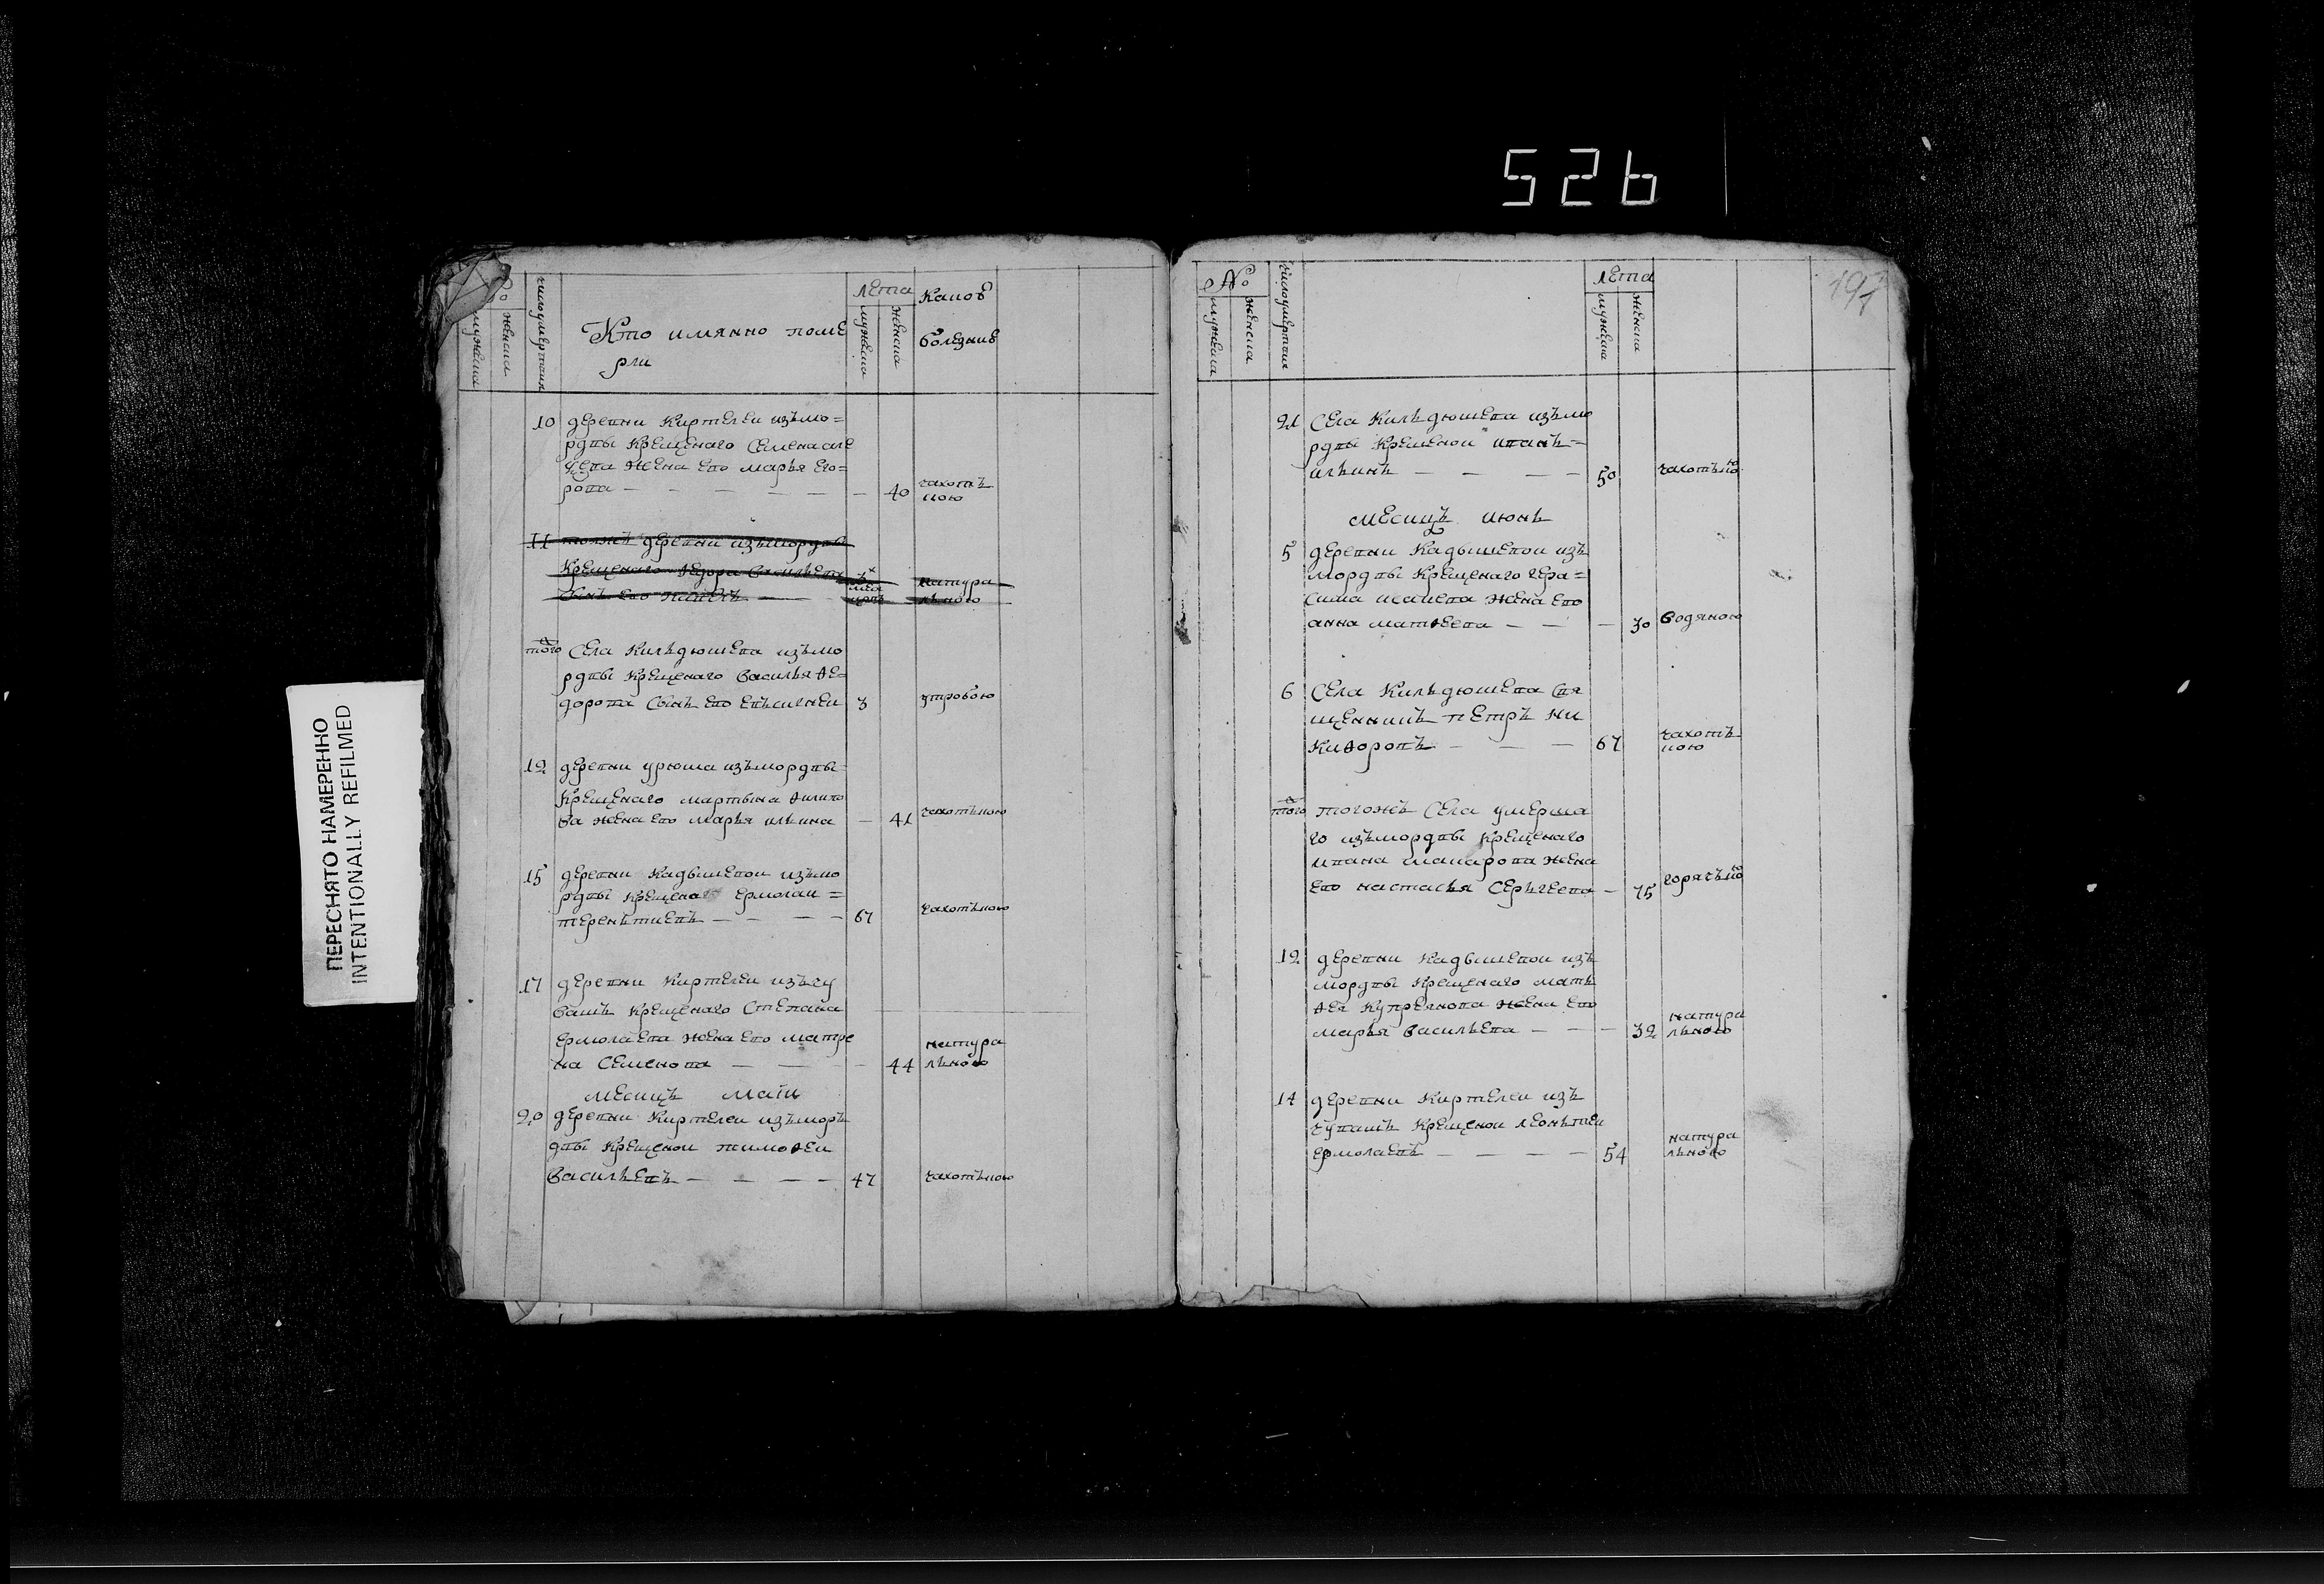 526
ПЕРЕСНЯТО НАМЕРЕННО
INTENTIONALLY REFILMED
№
мужеска
женска
число умертвия
Кто имянно поме
рли
лета
мужеска
женска
Какой
болезнию
10 деревни Киртелей изъ мо=
рдвы крещенаго Семена але
ева жена ево марья его=
рова — 40 чахотъ
ною
11 тояжъ деревни изъ мордвы
крещенаго Ѳедора Васильева
сынъ ево натура
льною
того Села Кильдюшева изъ мо
рдвы крещенаго Василья Ѳе=
дорова сынъ ево евъсигней 3 утробою
12 деревни урюма изъ мордвы
крещенаго мартына Ѳилипо
ва жена ево марья ильина — 41 чахотъною
15 деревни Кадышевой изъ мо
рдвы крещеной ермолай =
теренътиевъ — 67 чахотъною
17 деревни Киртелей изъ чу
вашъ крещенаго Степана
ермолаева жена ево матре
на Семенова — 44 натура
льною
месяцъ маiй
20 деревни Киртелей изъ моръ
двы крещеной тимоѳей
Васильевъ — 47 чахотъною
№
мужеска
женска
число умертвия
лета
мужеска
женска
197
21 Села Кильдюшева изъ мо
рдвы крещеной иванъ =
ильинъ — 50 чахотъною
месяцъ июнь
5 деревни Кадышевой изъ
мордвы крещенаго гера=
сима исаиева жена ево
анна матѳеева — 30 водяною
6 Села Кильдюшева свя
щенникъ петръ ни
киѳоровъ — 67 чахотъ
ною
того тогожъ Села умерша
го изъ мордвы крещенаго
ивана макарова жена
ево настасья Серьгеева — 75 горячъною
12 деревни Кадышевой изъ
мордвы крещенаго матъ
Ѳея Купреянова жена ево
марья Васильева — 32 натура
льною
14 деревни Киртелей изъ
чувашъ крещеной леонътей
ермолаевъ — 54 натура
льною